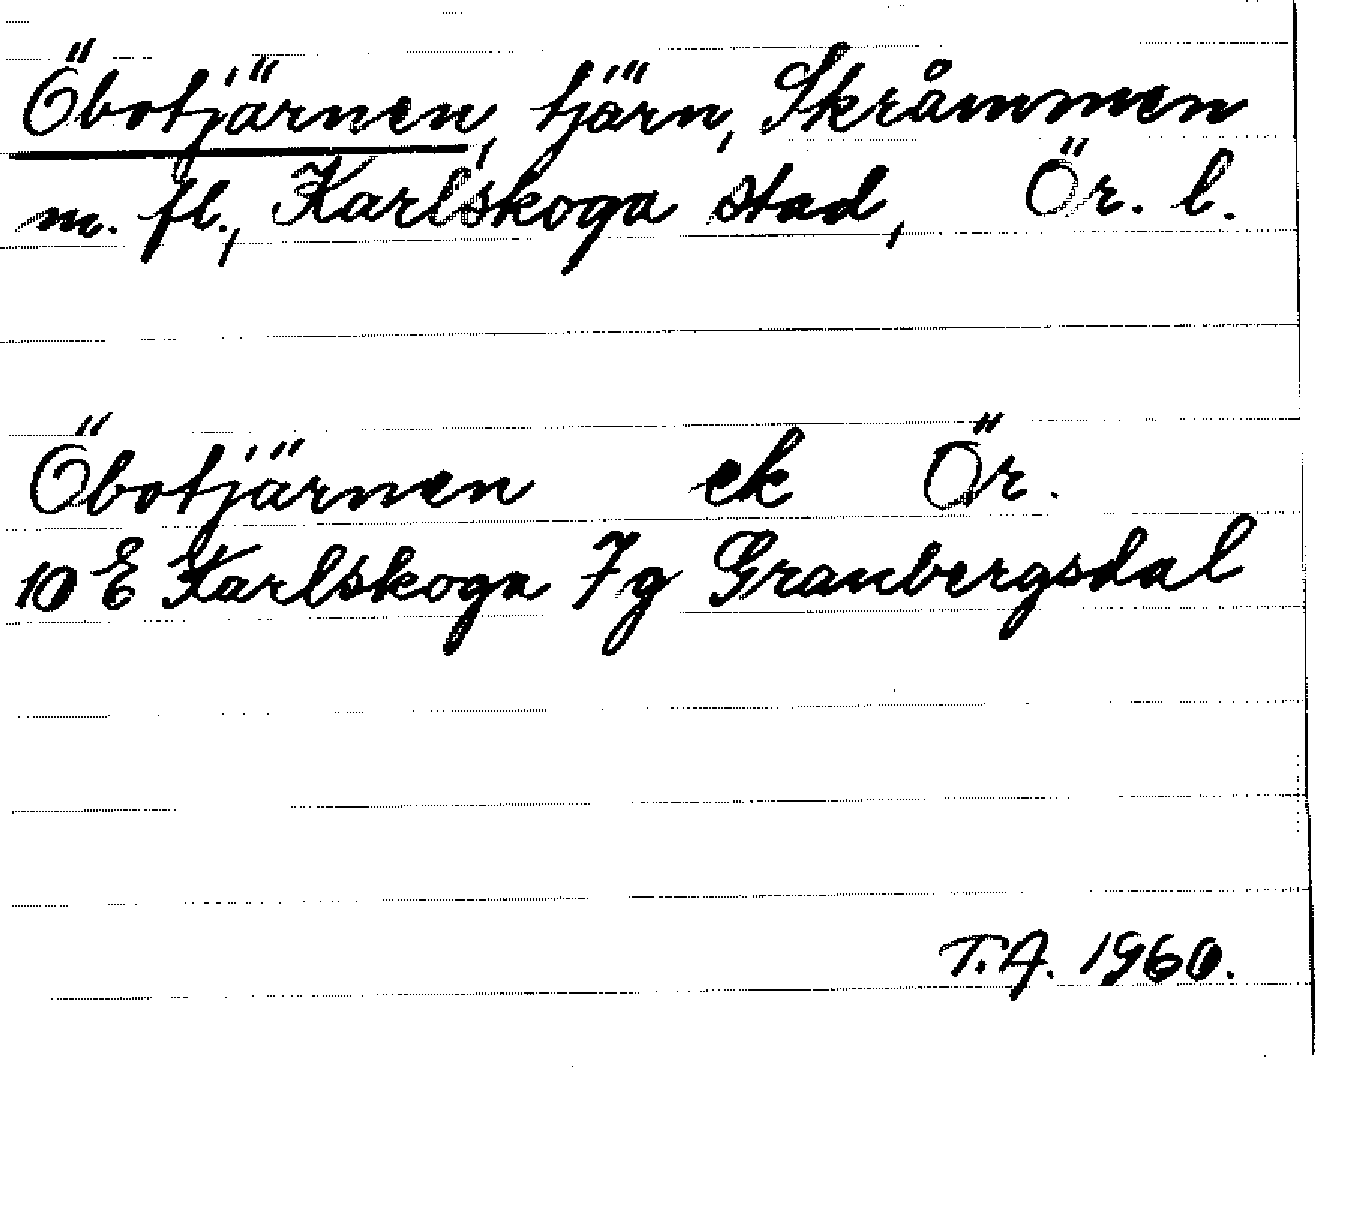 Öbotjärnen, tjärn, Skråmmen
m. fl., Karlskoga stad, Ör. l.
Öbotjärnen ek Ör.
10 E Karlskoga 7g Granbergsdal
T.A. 1960.